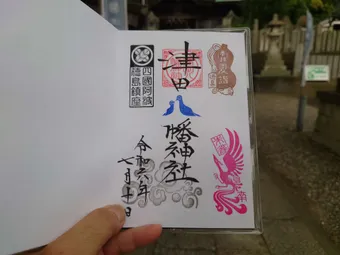 四國阿波
德島鎮座
津田八幡神社
令和六年
七月十日